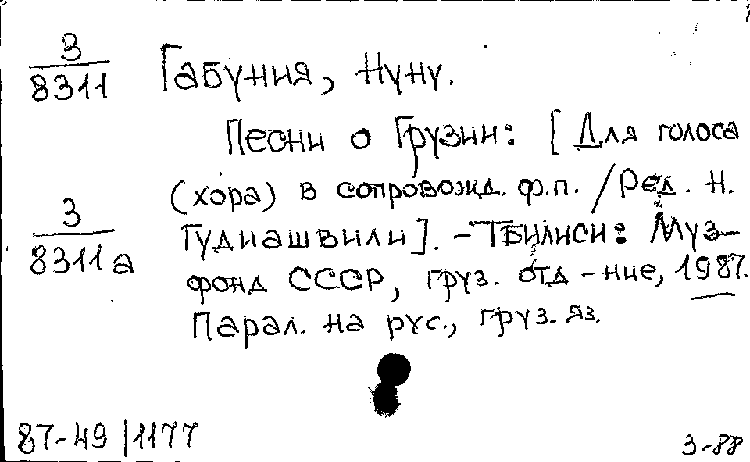 З
8311
Габуния, Нуну.
Песни о Грузии: [Для голоса
(хора) в сопровожд. ф.п. / Ред. Н.
З
8311а
Гудиашвили]. - Тбилиси: Муз-
фонд СССР, груз. отд-ние, 1987.
Парал. на рус., груз. яз.
87-49/1177
3-88